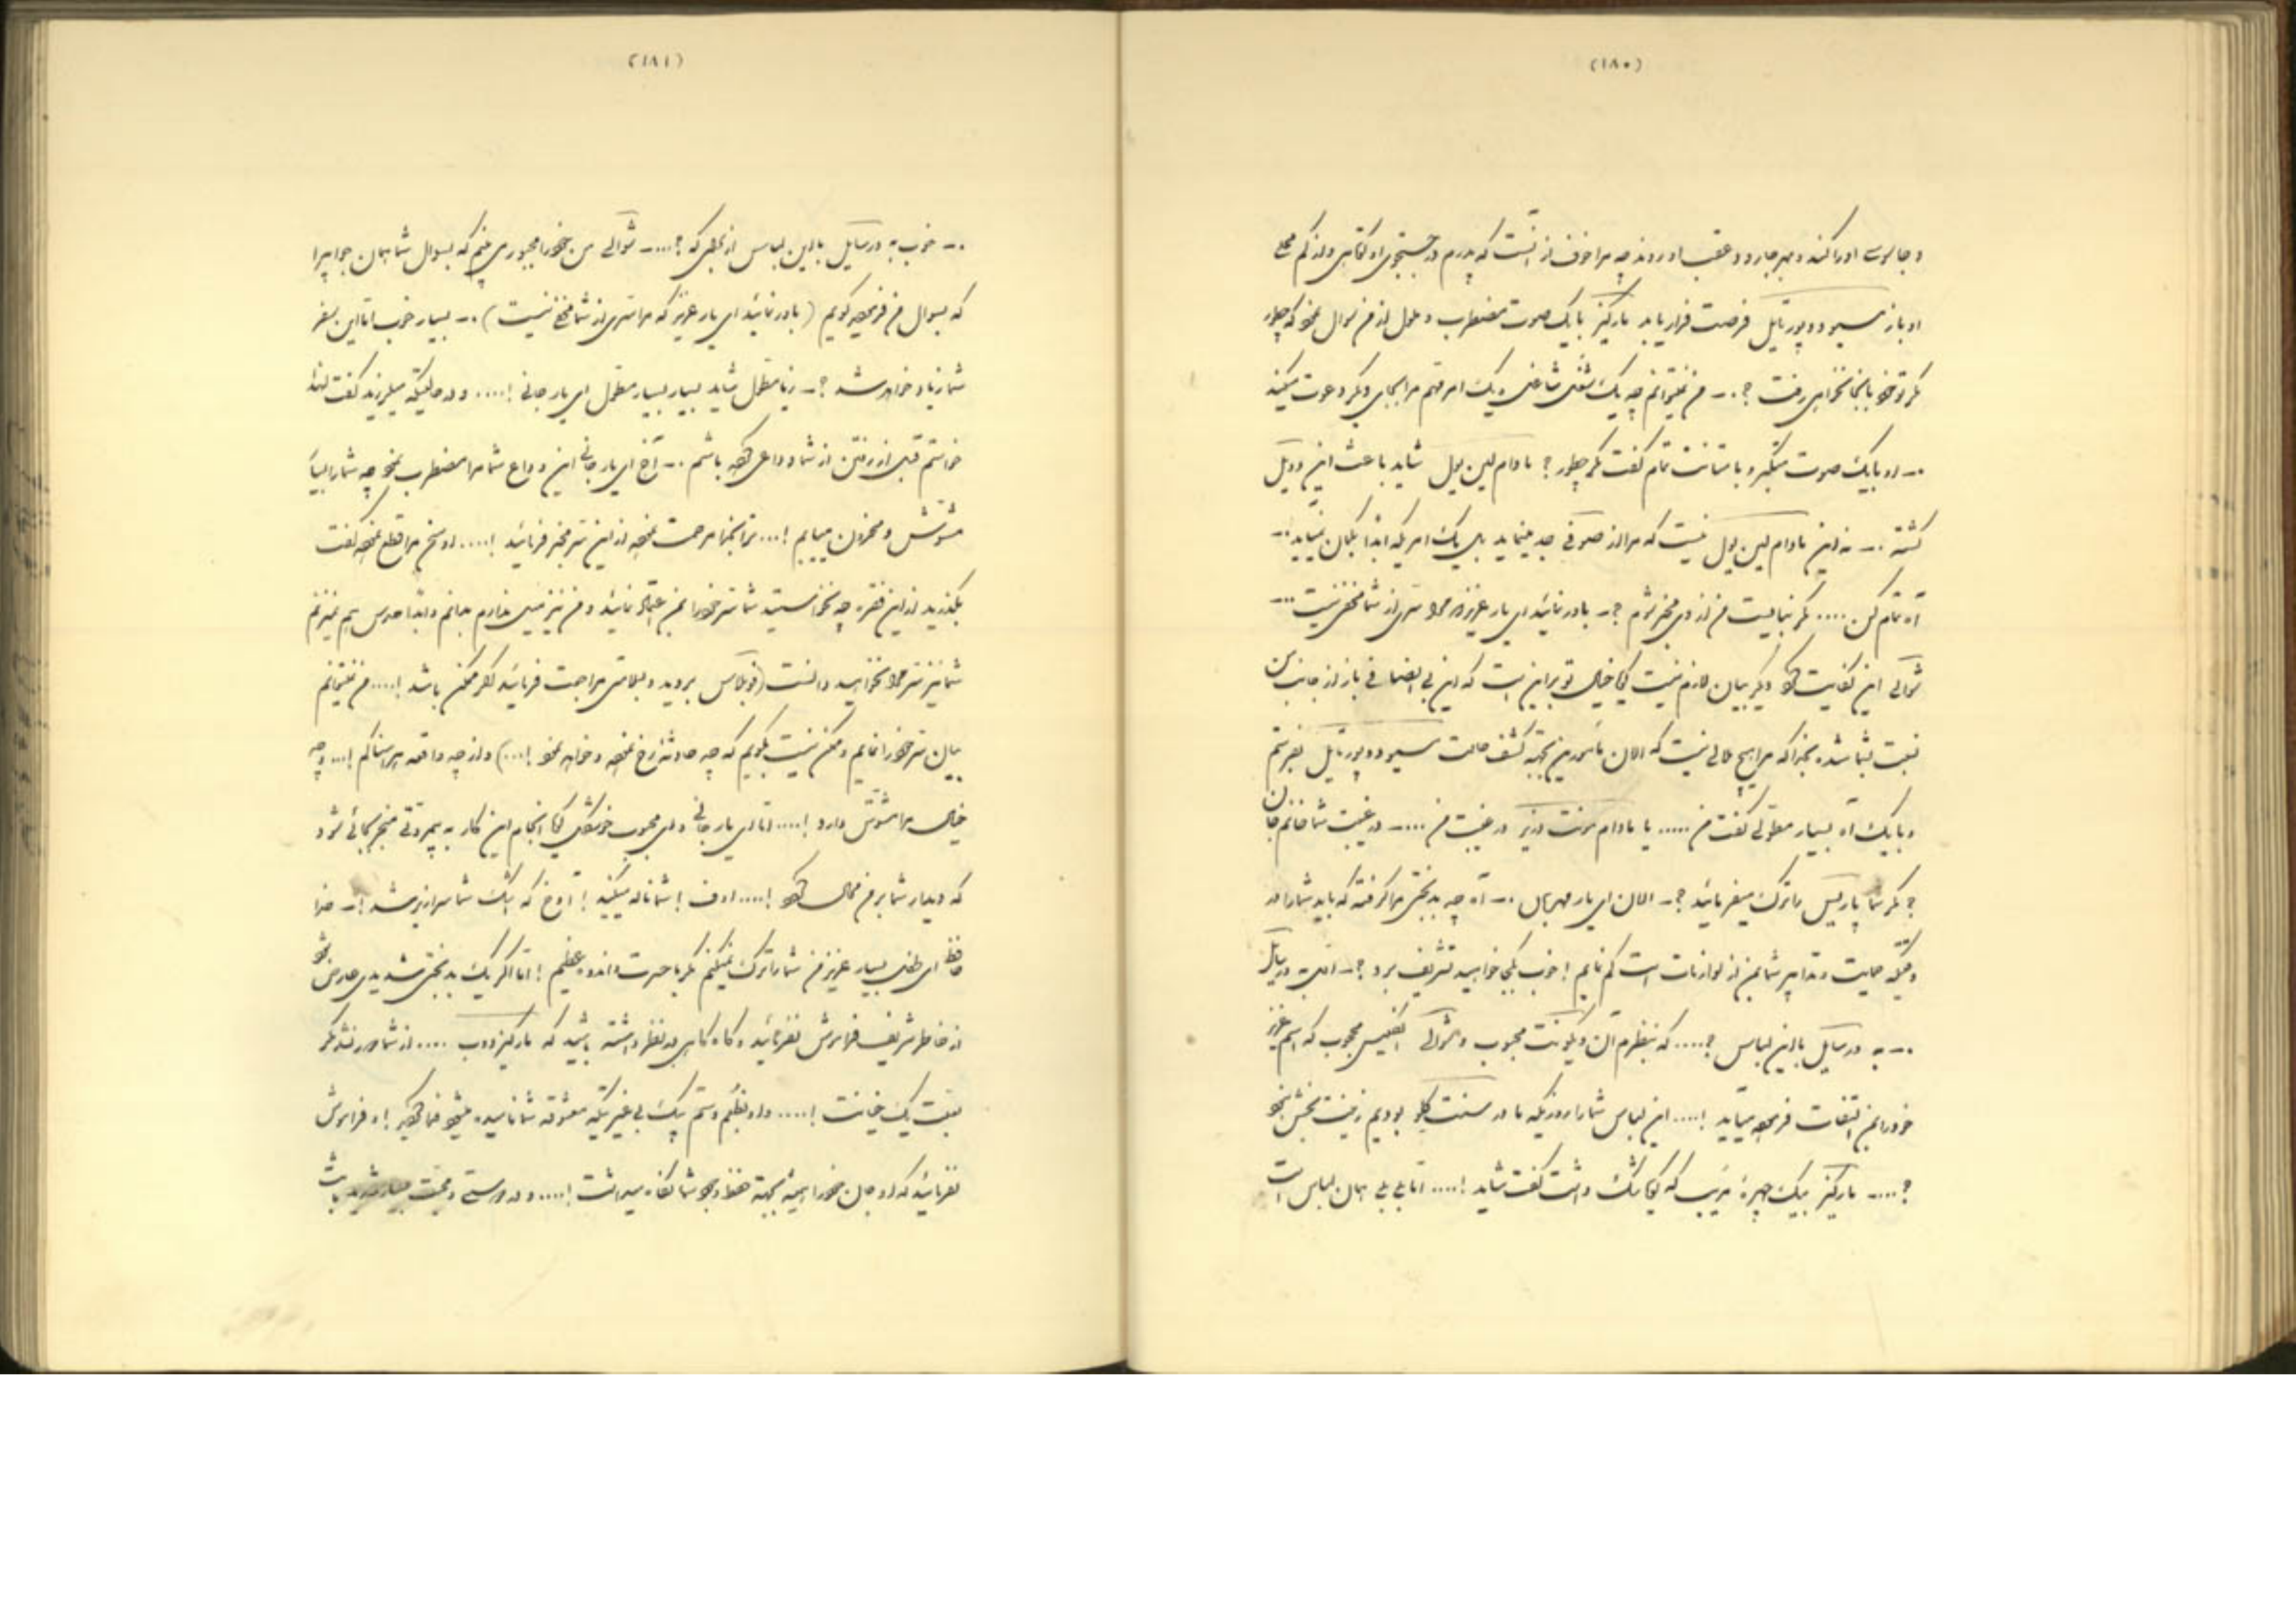 (۱۸۰)
و جاسوسی او را کنند و بهر جا رود عقب او روند چه مرا خوف از آنست که پدرم در جستجوی او کوتاهی ورزد کم
او باز مسیو دو پورتایل فرصت فرار یابد مارکیز با یک صوت مضطرب و ملول از من سوال نمود که چطور
مگر تو خود بآنجا نخواهی رفت ؟ ـ من نمیتوانم چه یک شغل شاغلی و یک امر مهم مرا بجای دیگر دعوت میکند
ـ او با یک صوت متکبر و با متانت تمام گفت مگر چطور ؟ مادام لین یول شاید باعث این دویل
گشته ـ نه این مادام لین یول نیست که مرا از صوفی جد مینماید بلی یک امریکه ابداً بگمان نیاید ـ
آه تمام کن .... مگر نبایست من از وی مخبر شوم ؟ ـ باور نمائید ای یار عزیزم مرا سری از شما مخفی نیست ـ
شوالی این کفایت کرد دیگر بیان لازم نیست گویا خیال تو براین است که این بی انصافی باز از جانب من
نسبت بشما شده بخدا که مرا هیچ ملالی نیست که الان مأمورین بجهة کشف حالت مسیو دو پورتایل بفرستم
و با یک آه بسیار مطولی گفت من ..... یا مادام مونت دزیر در غیبت من .... ـ در غیبت شما خانم جان من
؟ مگر شما پاریس را ترک میفرمائید ؟ ـ الان ای یار مهربان ـ آه چه بدبختی مرا گرفته که باید شما را در
وقتیکه حمایت و تدابیر شما بمن از لوازمات است گم نمایم ! خوب بکجا خواهید تشریف برد ؟ ـ البته در رسایل
ـ به ورسایل با این لباس ؟ .... که بنظرم آن ویکونت محبوب و شوالی نفیس محبوب که اسم عزیز
خود را بمن التفات فرموده میآید ! .... این لباس شما را روزیکه ما در سنت کلو بودیم زینت بخش نمود
؟ .... ـ مارکیز بیک چهرهٔ مریب که گویا رشک داشت گفت شاید ! .... اما بلی بلی همان لباس است
(۱۸۱)
ـ خوب به ورسایل با این لباس از بهر که ؟ .... ـ شوالی من خود را مجبور می بینم که بسوال شما همان جوابی را
که بسوال من فرمودید گویم ( باور نمائید ای یار عزیز که مرا سری از شما مخفی نیست ) ـ بسیار خوب اما این سفر
شما زیاد خواهد شد ؟ ـ زیاد مطول شاید بسیار بسیار مطول ای یار جانی ! .... و در حالتیکه میلرزید گفت لهذا
خواستم قبل از رفتن از شما وداعی کرده باشم ـ آخ ای یار جانی این وداع شما مرا مضطرب نمود چه شما را بسیار
مشوش و محزون مییابم ! .... تمنا بمن مرحمت نموده از این سر مخبر فرمائید ! .... او سخن مرا قطع نموده گفت
بگذرید از این فقره چه نخواستید شما سر خود را بمن اعتماد نمائید و من نیز میل ندارم بدانم و ابداً حدس هم نمیزنم
شما نیز سر مرا نخواهید دانست ( فوبلاس بروید و بسلامتی مراجعت فرمائید اگر ممکن باشد ! .... من نمیتوانم
بیان سر خود را نمایم و ممکن نیست بگویم که چه حادثه رخ نموده و خواهد نمود ! ... ) و از چه واقعه هراسناکم ! ... و چه
خیال مرا مشوش دارد ! .... اما ای یار جانی و ای محبوب خوشگل گویا انجام این کار به بیمروتی منجر بجائی شود
که دیدار شما بر من محال گردد ! .... اوف ! شما ناله میکنید ! آوخ که اشک شما سرازیر شد ! ـ خدا
حافظ ای طفل بسیار عزیز من شما را ترک نمیکنم مگر با حسرت و اندوه عظیم ! اما اگر یک بدبختی شدیدی عارض شود
از خاطر شریف فراموش نفرمائید و گاه گاهی در نظر داشته باشید که مارکیز دوب .... از شما دور نشد مگر
بسبب یک خیانت ! ....
نفرمائید که او جان خود را همیشه بجهة حفظ وجود شما نگاه میداشت ! .... و در دوستی و محبت بسیار شدید بشما